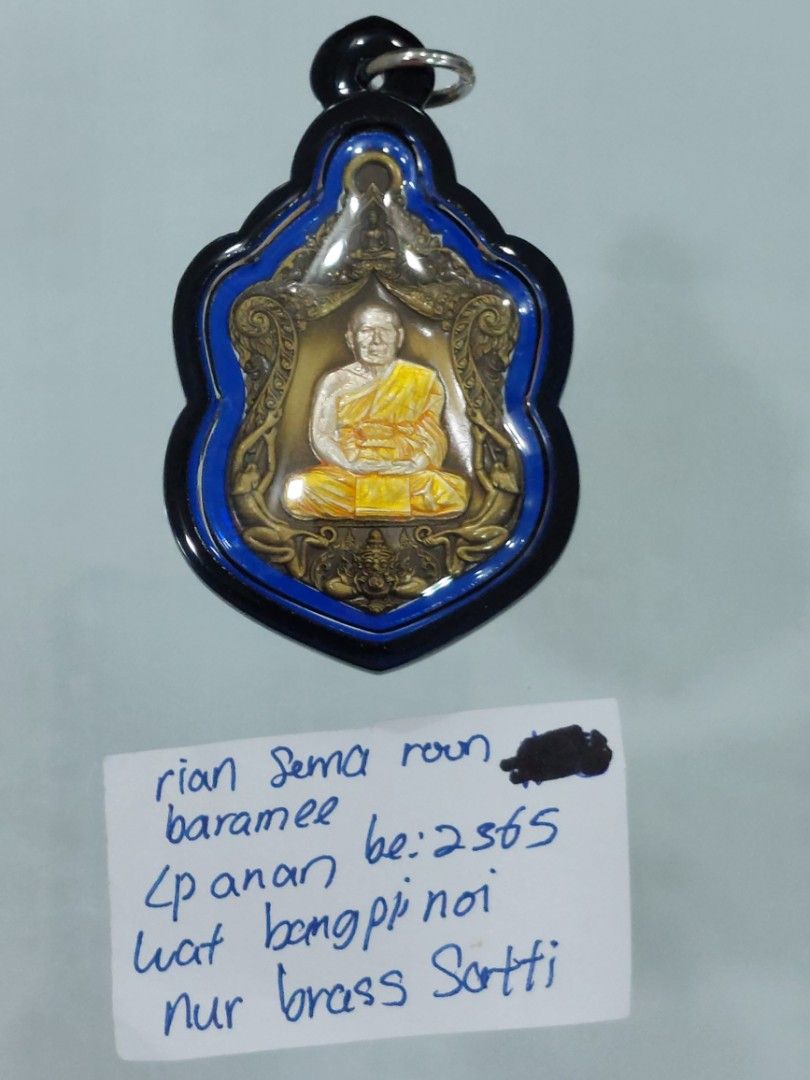 rian Sema roon
baramee
Lp anan be: 2565
wat bangpli noi
nur brass Sartti